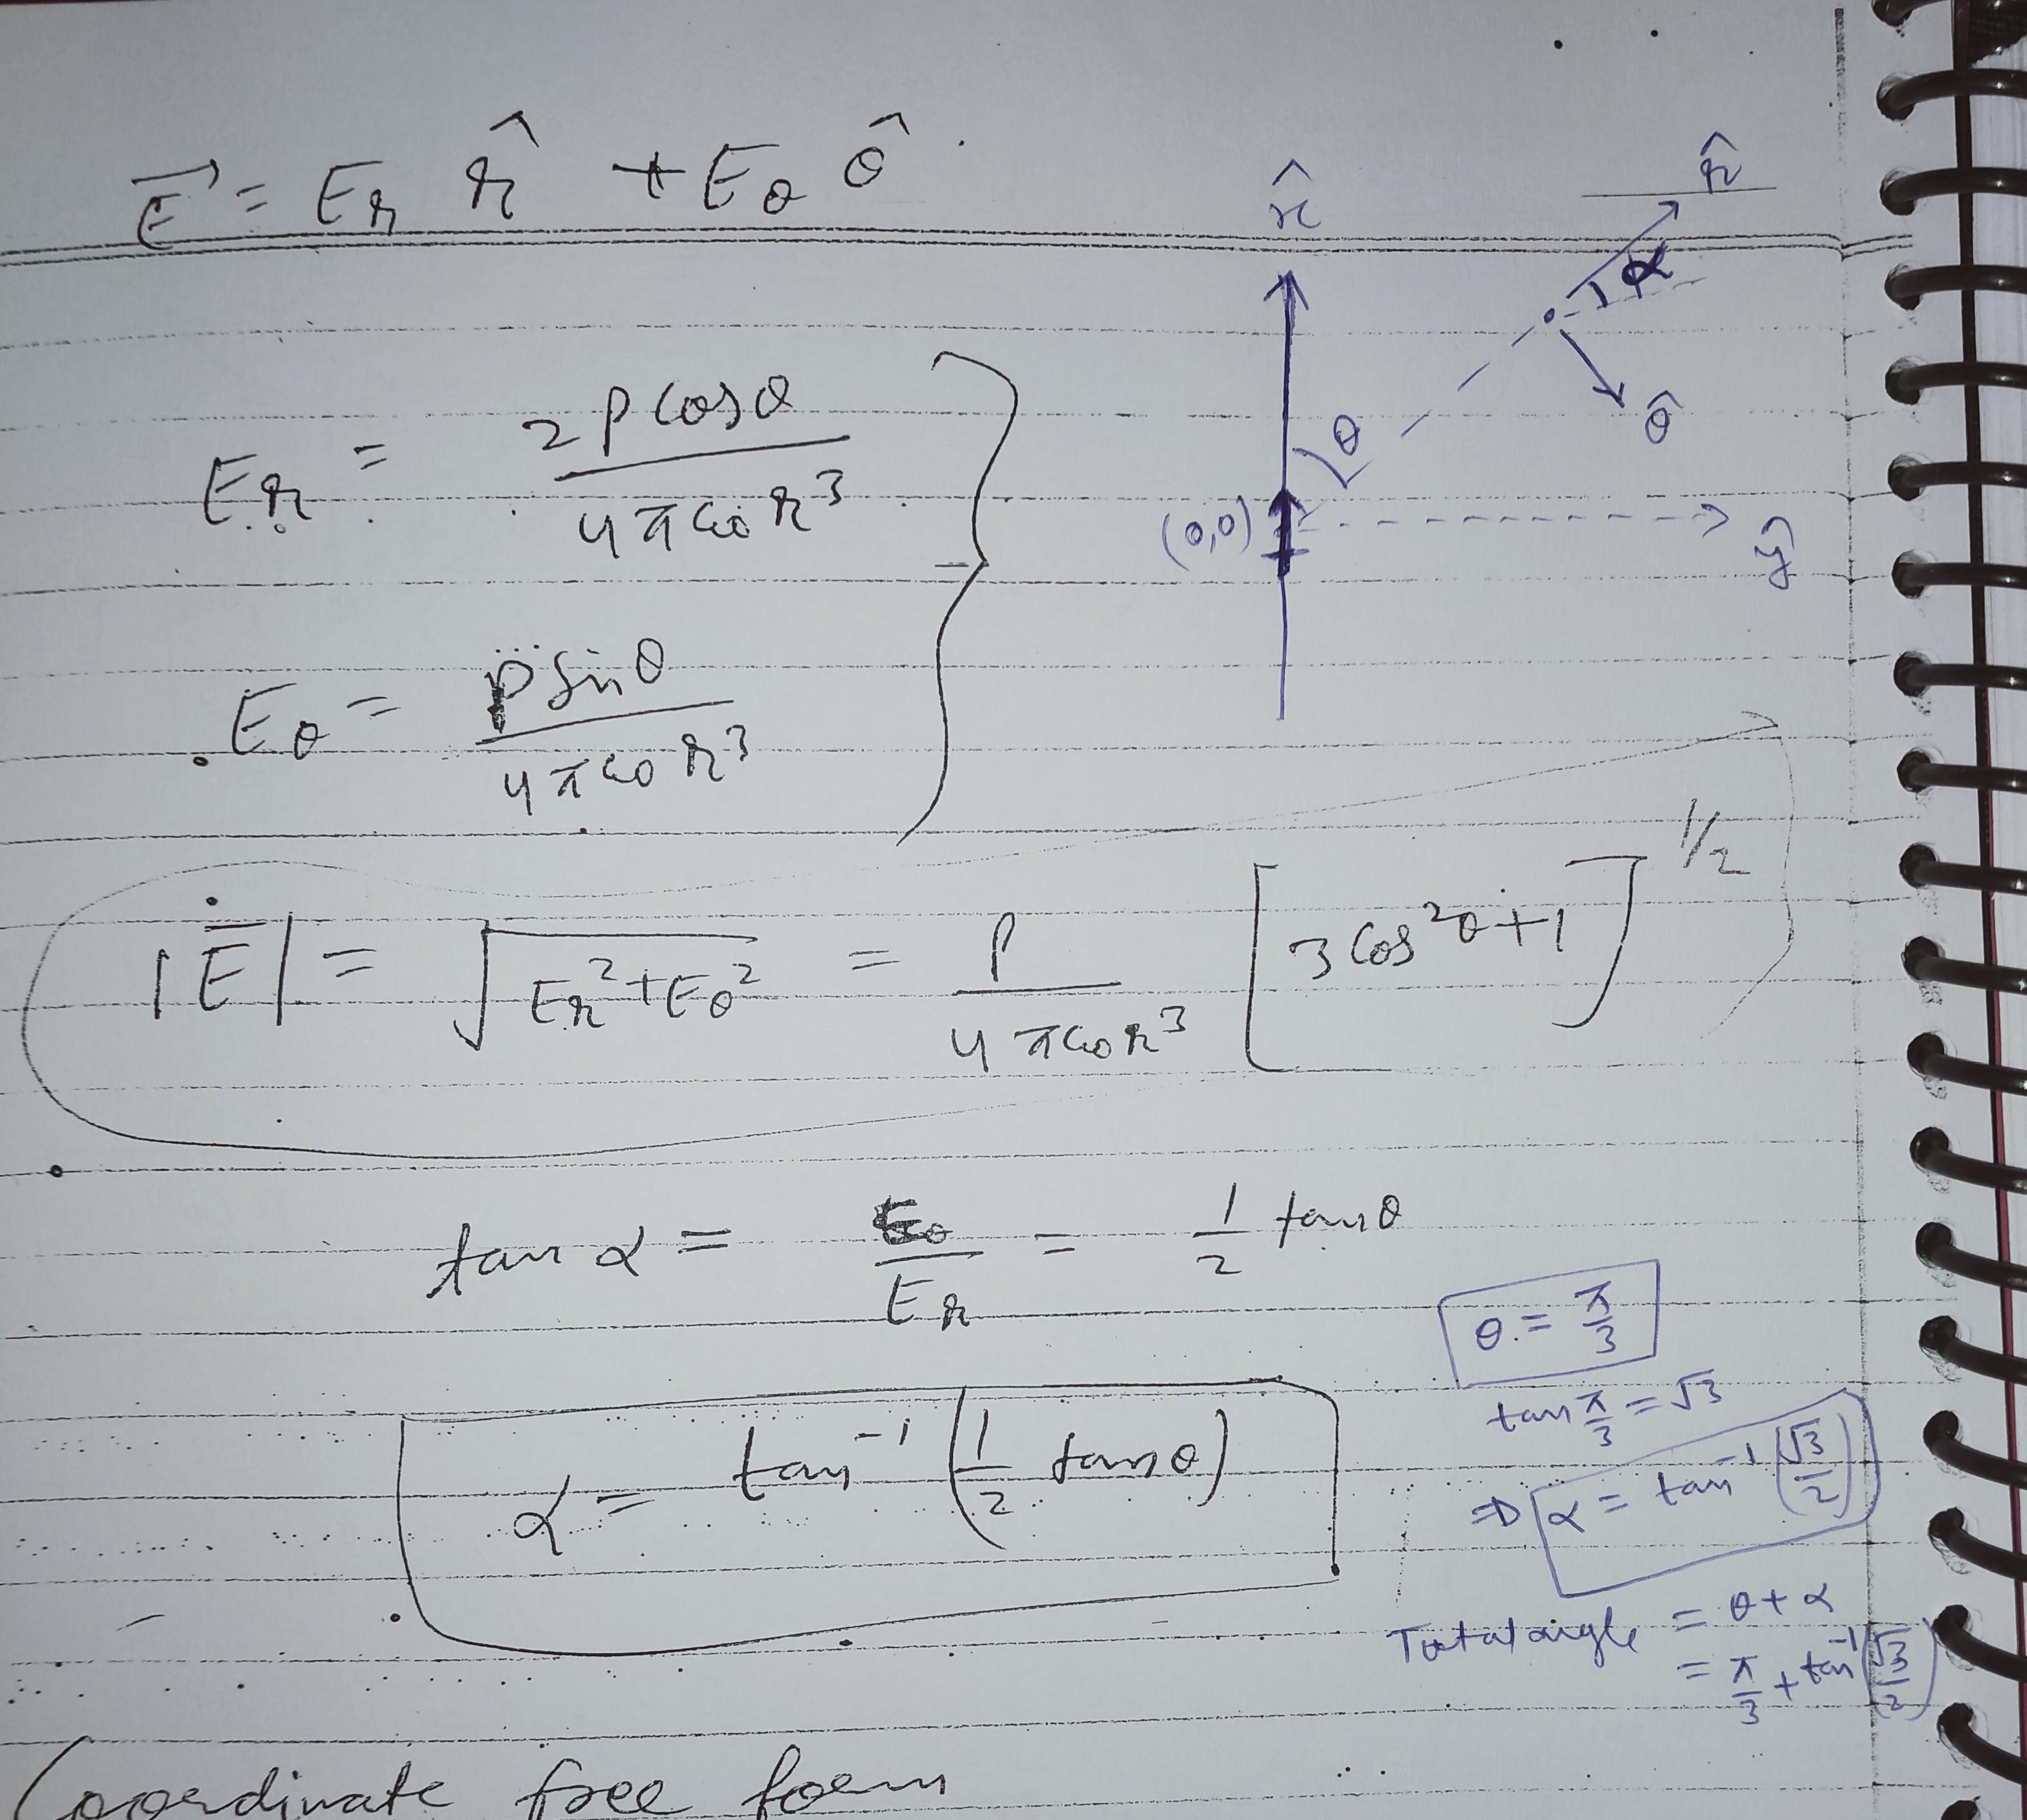 E⃗ = E_r r̂ + E_θ θ̂
x̂
r̂
α
θ̂
θ
(0,0)
ŷ
E_r = 2 p cosθ / 4πϵ₀r³
E_θ = p sinθ / 4πϵ₀r³
|E⃗| = √(E_r² + E_θ²) = p / 4πϵ₀r³ [3 cos²θ + 1]^1/2
tan α = E_θ / E_r = 1/2 tanθ
α = tan⁻¹ (1/2 tanθ)
θ = π/3
tan π/3 = √3
⇒ α = tan⁻¹ (√3/2)
Total angle = θ + α
= π/3 + tan⁻¹ (√3/2)
Coordinate free form